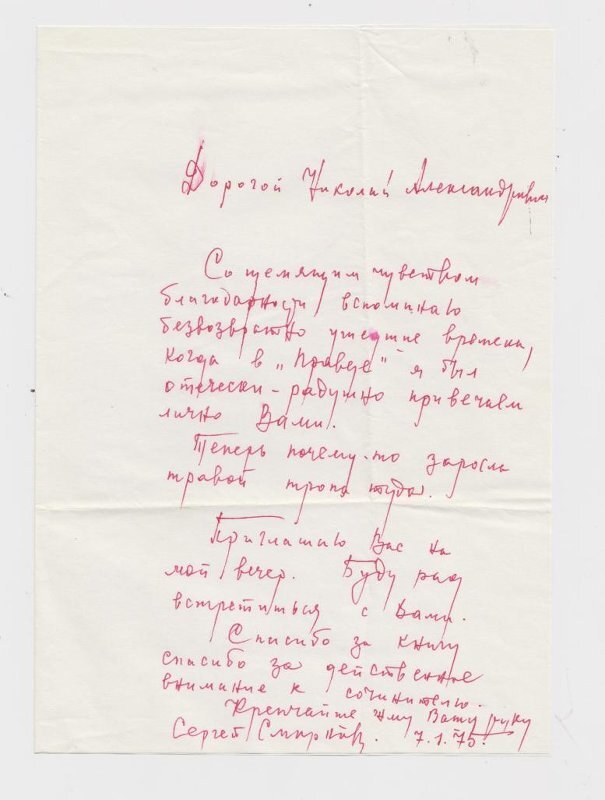 Дорогой Николай Александрович
Со щемящим чувством
благодарности вспоминаю
безвозвратно ушедшие времена,
когда в „Правде“ я был
отечески-радушно привечаем
лично Вами.
Теперь почему-то заросла
травой тропа туда.
Приглашаю Вас на
мой вечер. Буду рад
встретиться с Вами.
Спасибо за книгу
спасибо за действенное
внимание к сочинителю.
Крепчайше жму Вашу руку
Сергей Смирнов. 7.1.75.